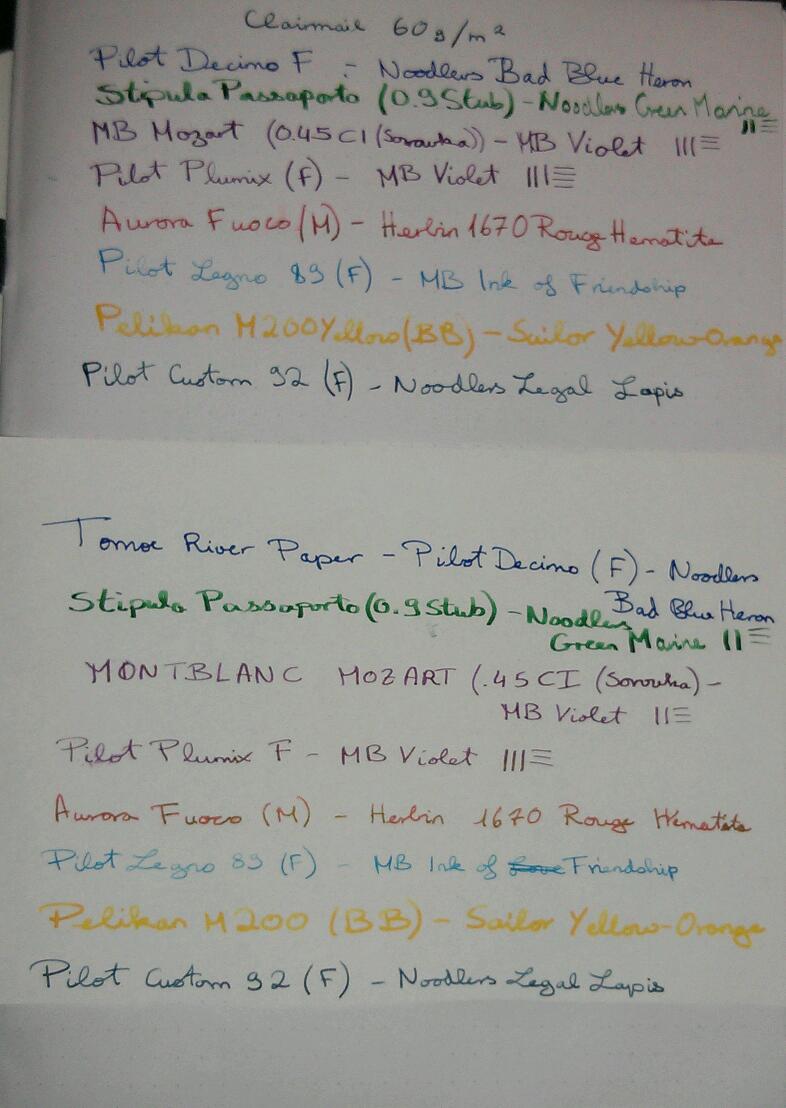 Clairmail 60g/m²
Pilot Decimo F :- Noodlers Bad Blue Heron
Stipula Passaporto (0.9 Stub) - Noodlers Green Marine
MB Mozart (0.45 CI (Sorowka)) - MB Violet
Pilot Plumix (F) - MB Violet
Aurora Fuoco (M) - Herbin 1670 Rouge Hematite
Pilot Legno 89 (F) - MB Ink of Friendship
Pelikan M200 Yellow (BB) - Sailor Yellow-Orange
Pilot Custom 92 (F) - Noodlers Legal Lapis
Tomoe River Paper - Pilot Decimo (F) - Noodlers
Bad Blue Heron
Stipula Passaporto (0.9 Stub) - Noodlers
Green Marine
MONTBLANC MOZART (.45 CI (Sorowka) -
MB Violet
Pilot Plumix F - MB Violet
Aurora Fuoco (M) - Herbin 1670 Rouge Hematite
Pilot Legno 89 (F) - MB Ink of Love Friendship
Pelikan M200 (BB) - Sailor Yellow-Orange
Pilot Custom 92 (F) - Noodlers Legal Lapis